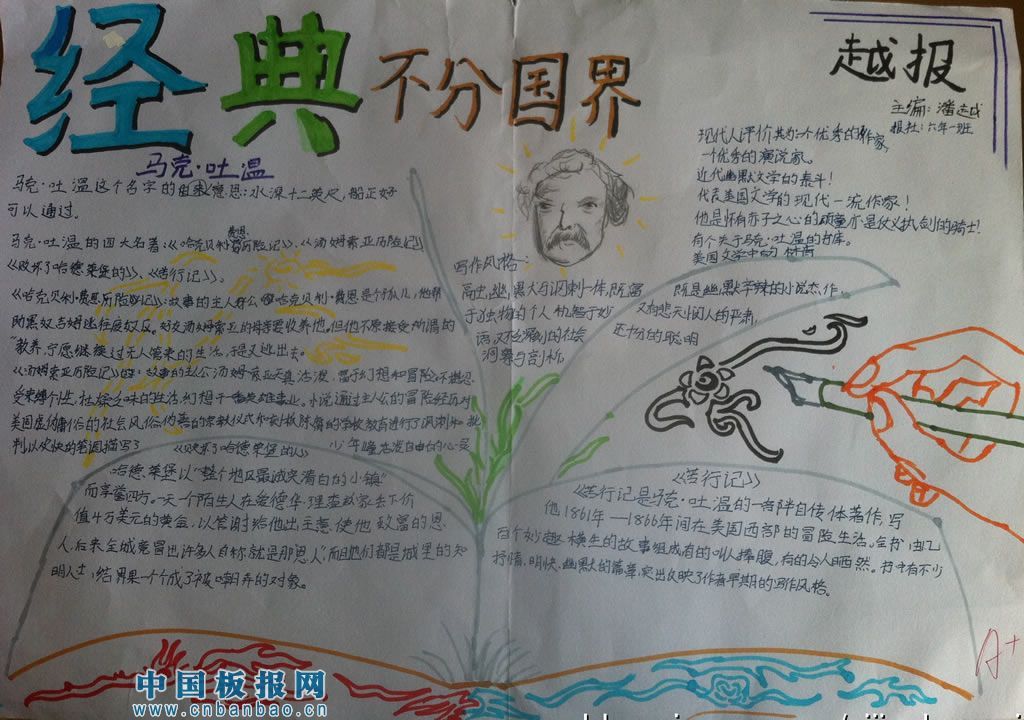 经典不分国界
越报
主编：潘越
报社：六年一班
马克·吐温
马克·吐温这个名字的由来意思：水深十二英尺，船正好
可以通过。
马克·吐温的四大名著：《哈克贝利·费恩历险记》、《汤姆索亚历险记》
《败坏了哈德莱堡的》、《苦行记》。
《哈克贝利·费恩历险记》：故事的主人好么哈克贝利·费恩是个孤儿，他帮
助黑奴吉姆逃往废奴区。好友汤姆索亚的
要收养他。但他不愿接受所谓的
"教养，宁愿继续过无人管束的生活，于是又逃出去。
《汤姆索亚历险记》故事的主公汤姆·索亚天真活泼，富于幻想和冒险，不堪忍
受束缚个性、枯燥乏味的生活，幻想干一番英雄事业。小说通过主公的冒险经历对
美国虚伪庸俗的社会风俗、伪善的宗教仪式和刻板陈腐的学校教育进行了讽刺和批
判，以欢快的笔调描写了
少年
自由的心灵
《败坏了哈德莱堡的人》
哈德莱堡以"整个地区最诚实清白的小镇"
而享誉四方。一天一个陌生人在爱德华·理查兹家丢下价
值4万美元的黄金，以答谢给他出主意使他致富的恩
人，后来全城竟冒出许多人自称就是那恩人，而且他们都是城里的知
明人士，结果一个个成了被嘲弄的对象。
写作风格：
高出，幽默与讽刺一体，既富
于独特的个人机智于妙
语，又不乏深刻的社会
洞察与剖析，
既是幽默辛辣的小说杰作，
又有悲天悯人的严肃，
还十分的聪明
现代人评价其为：一个优秀的作家，
一个优秀的演说家。
近代幽默文学的泰斗！
代表美国文学的现代一流作家！
他是怀有赤子之心的顽童，亦是仗义执剑的骑士！
有个关于马克·吐温的书库。
美国文学中的林肯
《苦行记》
《苦行记是马克·吐温的一部半自传体著作，写
他1861年—1866年间在美国西部的冒险生活。全书由几
百个妙趣横生的故事组成，有的叫人捧腹，有的令人哂然。书中有不少
抒情、明快、幽默的篇章，突出反映了作者早期的写作风格。
A+
中国板报网
www.cnbanbao.cn